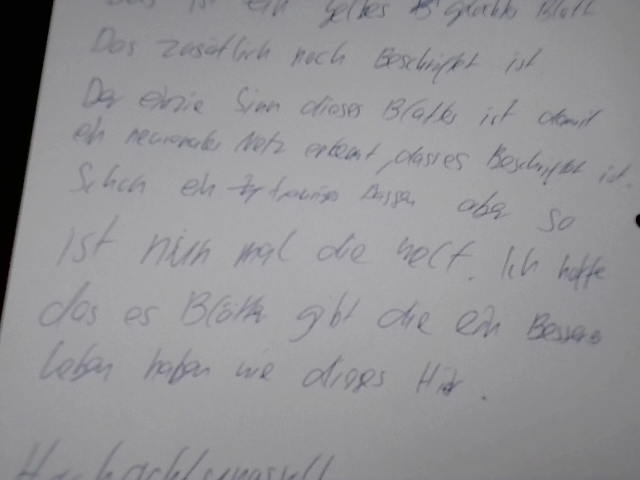 Das ist ein gelbes Blatt
Das zusätlich noch Beschriftet ist
Der einzie Sinn dieses Blattes ist damit
ein neuronales Netz erkennt, dass es Beschriftet ist.
Schon ein trauriges Dassen aber so
ist nun mal die welt. Ich hoffe
das es Blätter gibt die ein Besseres
leben haben wie dieses Hier.
Hochachtungsvoll